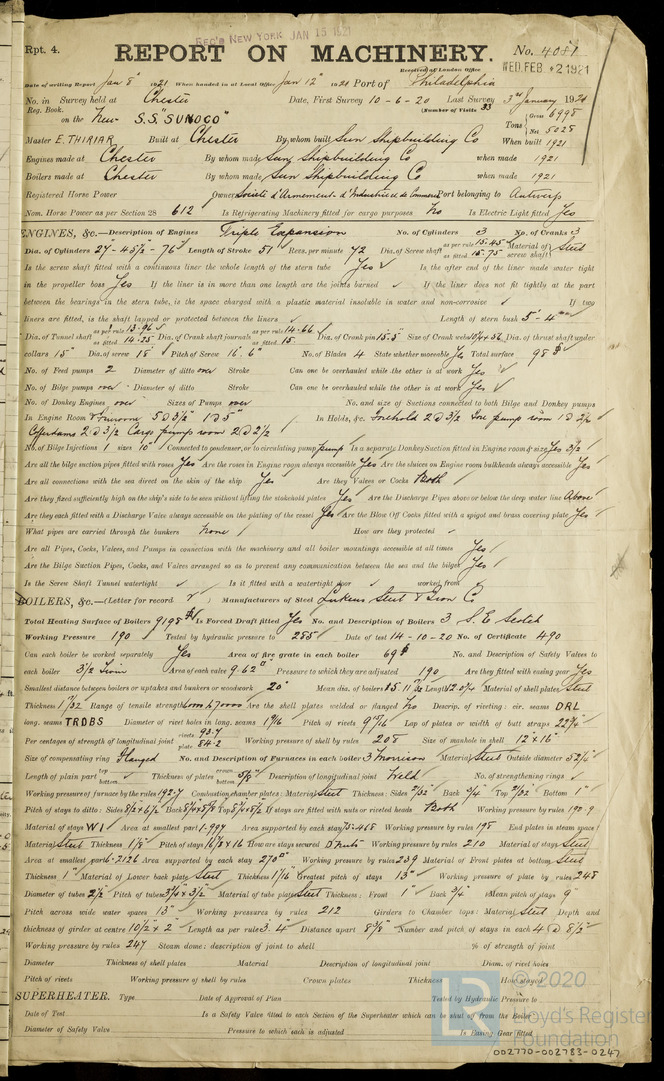 Rpt. 4.
REC'D NEW YORK JAN 15 1921
REPORT ON MACHINERY.
No. 4081
Received at London Office
WED. FEB 2 1921
Date of writing Report Jan 8 1921 When handed in at Local Office Jan 12 1921 Port of Philadelphia
No. in Survey held at Chester Date, First Survey 10-6-20 Last Survey 3rd January 1921
Reg. Book. (Number of Visits 33
on the New S.S. "SUNOCO" Tons Gross 6998 Net 5028
Master E. THIRIAR Built at Chester By whom built Sun Shipbuilding Co When built 1921
Engines made at Chester By whom made Sun Shipbuilding Co when made 1921
Boilers made at Chester By whom made Sun Shipbuilding Co when made 1921
Registered Horse Power Owners Societe d'Armement d'Industrie et de Commerce Port belonging to Antwerp
Nom. Horse Power as per Section 28 612 Is Refrigerating Machinery fitted for cargo purposes No Is Electric Light fitted Yes
ENGINES, &c.—Description of Engines Triple Expansion No. of Cylinders 3 No. of Cranks 3
Dia. of Cylinders 27"-45½-76" Length of Stroke 51 Revs. per minute 72 Dia. of Screw shaft as per rule 15.45" as fitted 15.75" Material of screw shaft Steel
Is the screw shaft fitted with a continuous liner the whole length of the stern tube Yes Is the after end of the liner made water tight
in the propeller boss Yes If the liner is in more than one length are the joints burned If the liner does not fit tightly at the part
between the bearings in the stern tube, is the space charged with a plastic material insoluble in water and non-corrosive If two
liners are fitted, is the shaft lapped or protected between the liners Length of stern bush 5'-4"
Dia. of Tunnel shaft as per rule 13.96 as fitted 14.25 Dia. of Crank shaft journals as per rule 14.66 as fitted 15 Dia. of Crank pin 15.5" Size of Crank webs Dia. of thrust shaft under
collars 15" Dia. of screw 18' Pitch of Screw 16'.6" No. of Blades 4 State whether moveable Total surface 98
No. of Feed pumps 2 Diameter of ditto over Stroke Can one be overhauled while the other is at work Yes
No. of Bilge pumps over Diameter of ditto Stroke Can one be overhauled while the other is at work Yes
No. of Donkey Engines over Sizes of Pumps over No. and size of Suctions connected to both Bilge and Donkey pumps
In Engine Room & Fireroom 5 @ 3½" 1 @ 5" In Holds, &c. Forehold 2 @ 3½ Fore pump room 1 @ 2½
Cofferdams 2 @ 3½ Cargo pump room 2 @ 2½
No. of Bilge Injections 1 sizes 10" Connected to condenser, or to circulating pump Pump Is a separate Donkey Suction fitted in Engine room & size Yes 3½
Are all the bilge suction pipes fitted with roses Yes Are the roses in Engine room always accessible Yes Are the sluices on Engine room bulkheads always accessible Yes
Are all connections with the sea direct on the skin of the ship Yes Are they Valves or Cocks Both
Are they fixed sufficiently high on the ship's side to be seen without lifting the stokehold plates Yes Are the Discharge Pipes above or below the deep water line Above
Are they each fitted with a Discharge Valve always accessible on the plating of the vessel Yes Are the Blow Off Cocks fitted with a spigot and brass covering plate Yes
What pipes are carried through the bunkers None How are they protected
Are all Pipes, Cocks, Valves, and Pumps in connection with the machinery and all boiler mountings accessible at all times Yes
Are the Bilge Suction Pipes, Cocks, and Valves arranged so as to prevent any communication between the sea and the bilges Yes
Is the Screw Shaft Tunnel watertight Is it fitted with a watertight door worked from
BOILERS, &c.—(Letter for record ) Manufacturers of Steel Lukens Steel & Iron Co
Total Heating Surface of Boilers 9198 Is Forced Draft fitted Yes No. and Description of Boilers 3 S.E. Scotch
Working Pressure 190 Tested by hydraulic pressure to 285 Date of test 14-10-20 No. of Certificate 490
Can each boiler be worked separately Yes Area of fire grate in each boiler 69 No. and Description of Safety Valves to
each boiler 3½ Twin Area of each valve 9.62 Pressure to which they are adjusted 190 Are they fitted with easing gear Yes
Smallest distance between boilers or uptakes and bunkers or woodwork 20" Mean dia. of boilers Length 12.0¾ Material of shell plates Steel
Thickness 1 7/32 Range of tensile strength Are the shell plates welded or flanged No Descrip. of riveting: cir. seams DRL
long. seams TRDBS Diameter of rivet holes in long. seams 1 9/16 Pitch of rivets Lap of plates or width of butt straps 22¾
Per centages of strength of longitudinal joint rivets 93.7 plate 84.2 Working pressure of shell by rules 208 Size of manhole in shell 12" x 16"
Size of compensating ring Flanged No. and Description of Furnaces in each boiler 3 Morrison Material Steel Outside diameter
Length of plain part top bottom Thickness of plates crown bottom Description of longitudinal joint Weld No. of strengthening rings
Working pressure of furnace by the rules 192.7 Combustion chamber plates: Material Steel Thickness: Sides 2 Back ¾ Top Bottom 1"
Pitch of stays to ditto: Sides Back Top If stays are fitted with nuts or riveted heads Both Working pressure by rules 192.9
Material of stays WI Area at smallest part 1.994 Area supported by each stay Working pressure by rules 195 End plates in steam space:
Material Steel Thickness 1⅛" Pitch of stays How are stays secured D Nuts Working pressure by rules 210 Material of stays Steel
Area at smallest part 6.2126 Area supported by each stay 270 Working pressure by rules 239 Material of Front plates at bottom Steel
Thickness 1" Material of Lower back plate Steel Thickness 1 1/16 Greatest pitch of stays 13" Working pressure of plate by rules 248
Diameter of tubes 2½ Pitch of tubes Material of tube plates Steel Thickness: Front 1" Back ¾ Mean pitch of stays 9"
Pitch across wide water spaces 13" Working pressures by rules 212 Girders to Chamber tops: Material Steel Depth and
thickness of girder at centre 10½ x 2" Length as per rule Distance apart 8⅜" Number and pitch of stays in each 4 @ 8½"
Working pressure by rules 247 Steam dome: description of joint to shell % of strength of joint
Diameter Thickness of shell plates Material Description of longitudinal joint Diam. of rivet holes
Pitch of rivets Working pressure of shell by rules Crown plates Thickness How stayed
SUPERHEATER. Type Date of Approval of Plan Tested by Hydraulic Pressure to
Date of Test Is a Safety Valve fitted to each Section of the Superheater which can be shut off from the Boiler
Diameter of Safety Valve Pressure to which each is adjusted Is Easing Gear fitted
LR
© 2020
Lloyd's Register
Foundation
002770-002783-0247